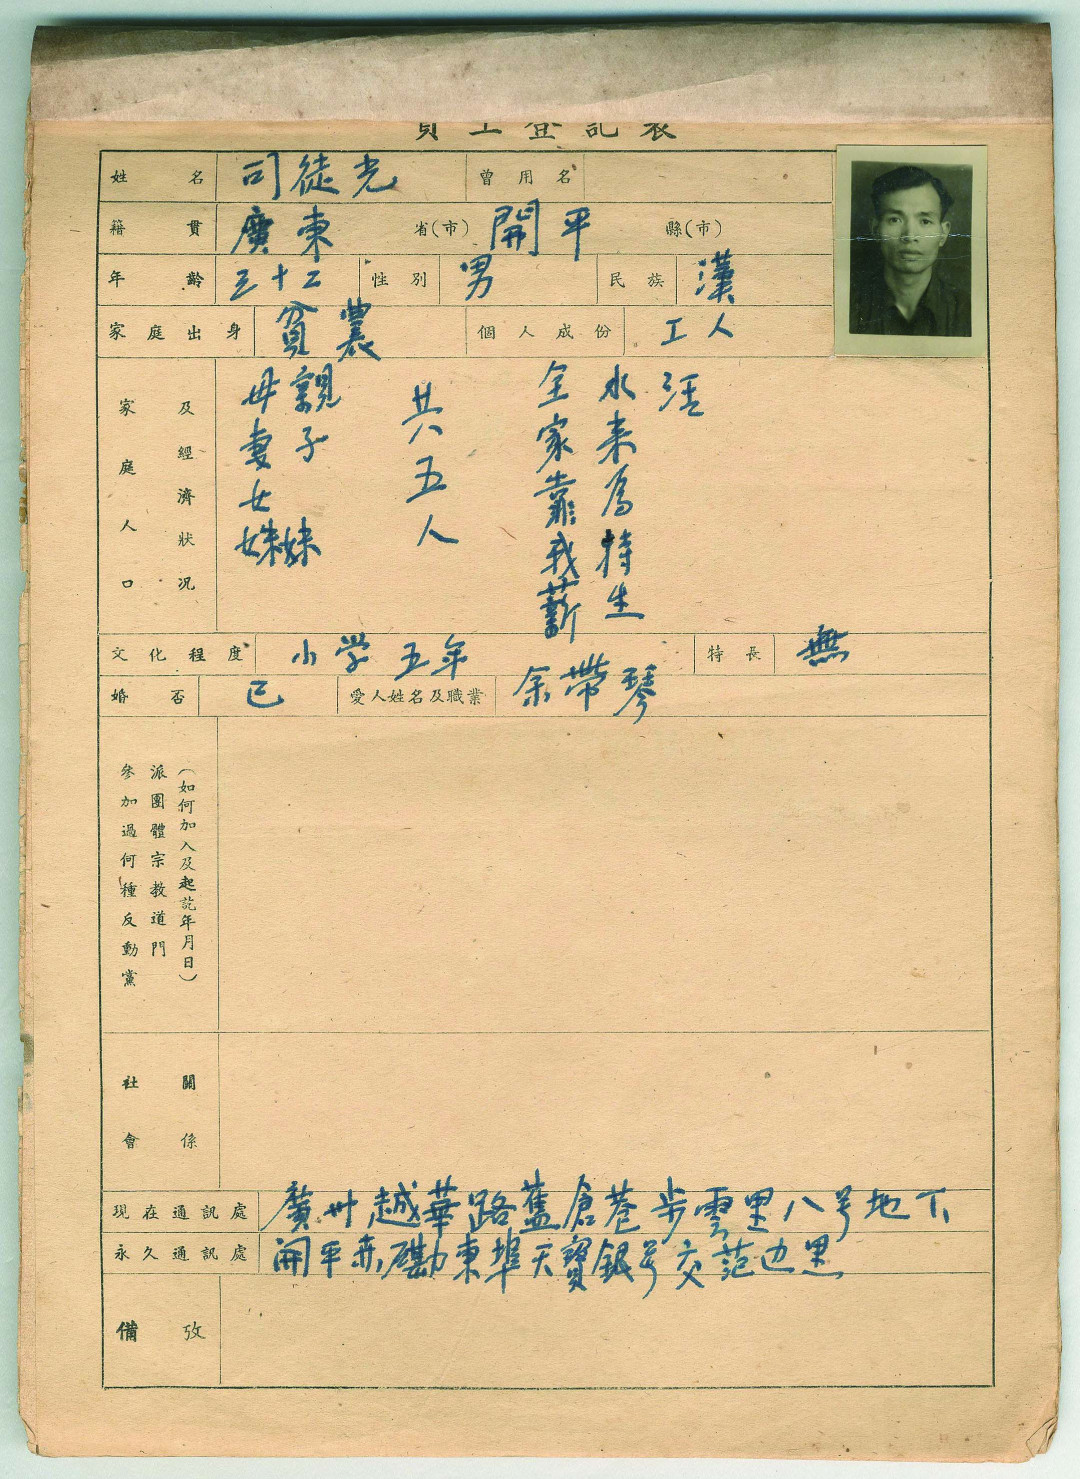 員工登記表
姓名 司徒光 曾用名
籍貫 廣東 省(市) 開平 縣(市)
年齡 三十二 性別 男 民族 漢
家庭出身 貧農 個人成份 工人
家庭人口及經濟狀況
母親
妻子
女
姊妹
共五人
全家靠我薪
水来為持生
活
文化程度 小学五年 特長 無
婚否 已 愛人姓名及職業 余帶琴
參加過何種反動黨
派團體宗教道門
(如何加入及起訖年月日)
社會關係
現在通訊處 廣州越華路舊倉巷步雲里八号地下
永久通訊處 開平赤磡東埠天寶銀号交范边里
備攷